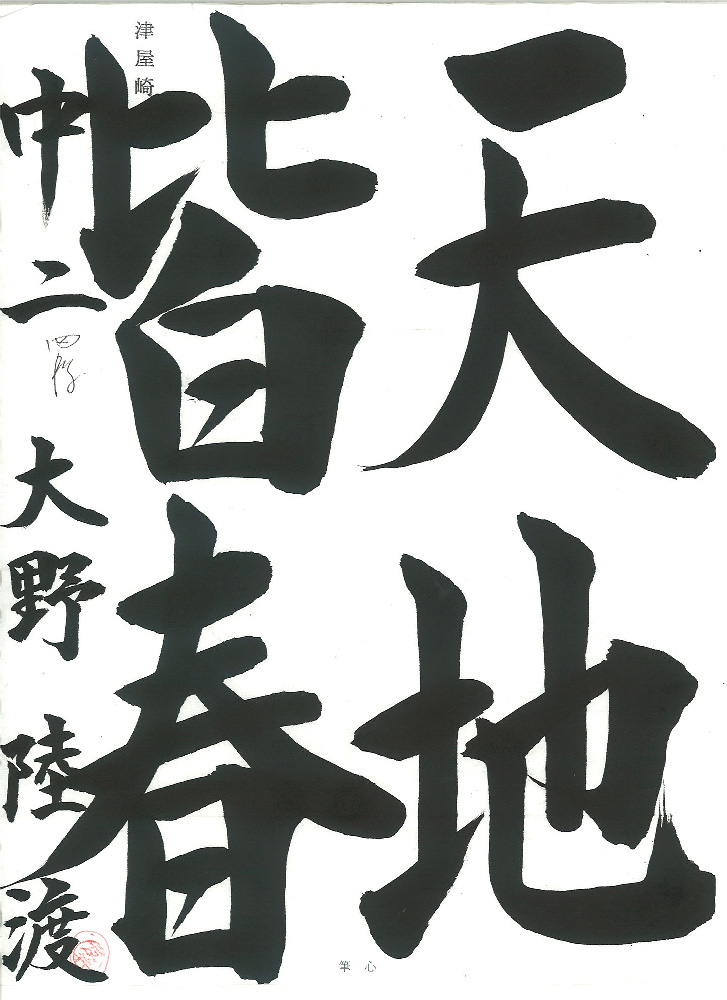 天地
皆春
津屋崎
中二 四段 大野陸渡
筆心